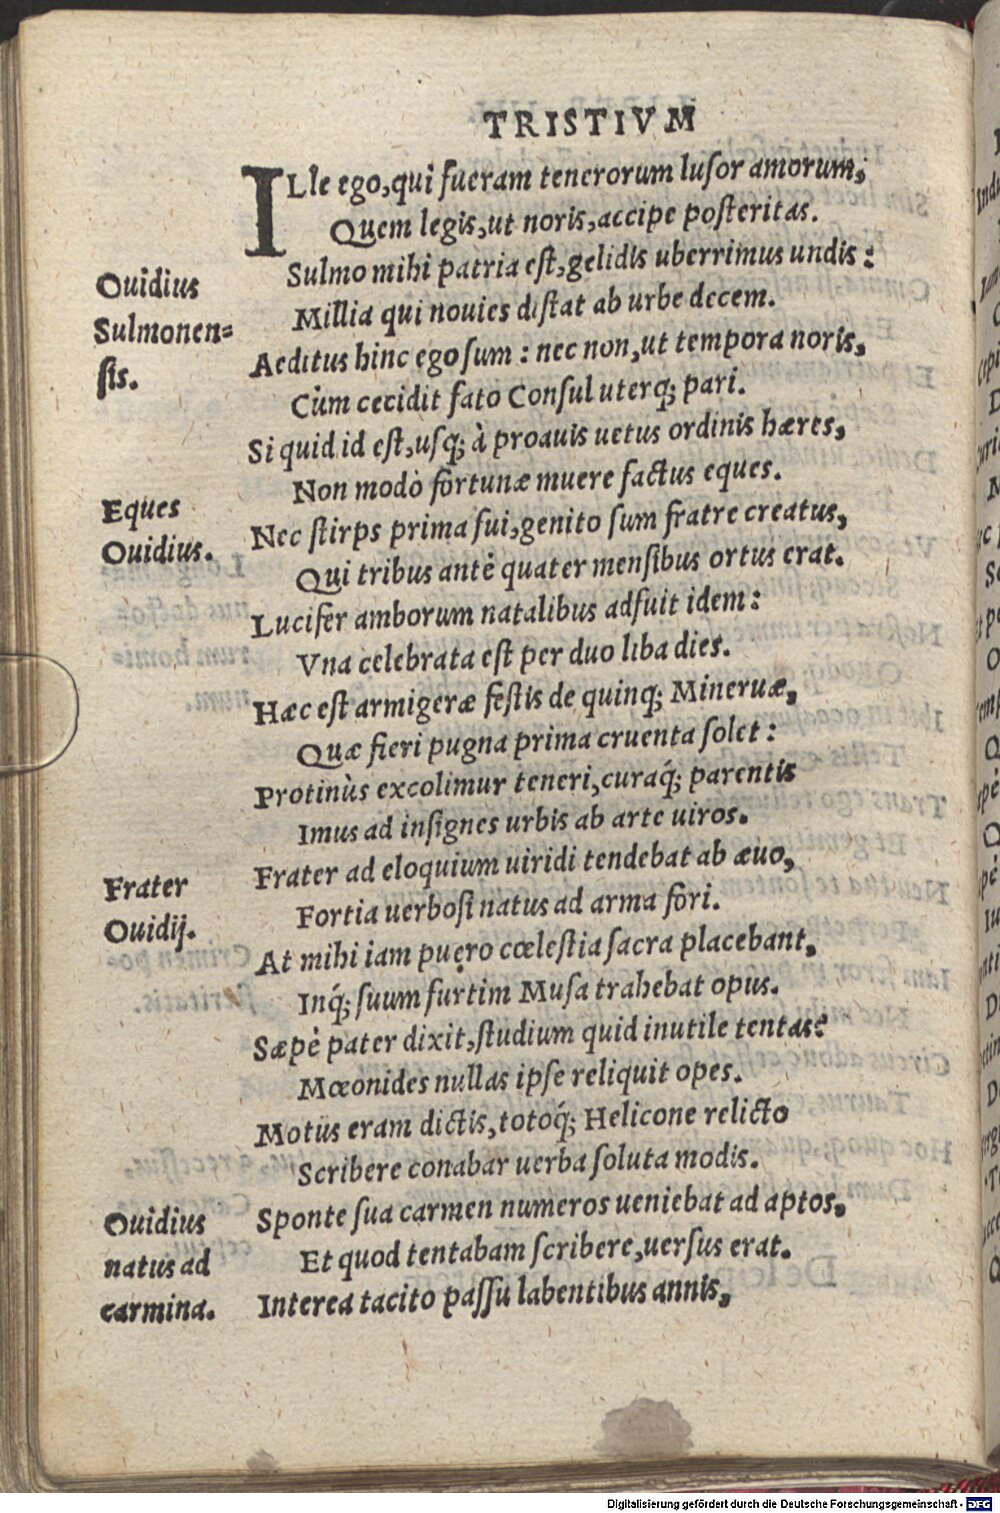 TRISTIVM
ILle ego, qui fueram tenerorum lusor amorum,
Quem legis, ut noris, accipe posteritas.
Sulmo mihi patria est, gelidis uberrimus undis:
Millia qui nouies distat ab urbe decem.
Aeditus hinc ego sum: nec non, ut tempora noris,
Cùm cecidit fato Consul uterq; pari.
Si quid id est, usq; à proauis uetus ordinis hæres,
Non modò fortunæ muere factus eques.
Nec stirps prima fui, genito sum fratre creatus,
Qui tribus antè quater mensibus ortus erat.
Lucifer amborum natalibus adfuit idem:
Vna celebrata est per duo liba dies.
Hæc est armigeræ festis de quinq; Mineruæ,
Quæ fieri pugna prima cruenta solet:
Protinùs excolimur teneri, curaq́; parentis
Imus ad insignes urbis ab arte uiros.
Frater ad eloquium uiridi tendebat ab æuo,
Fortia uerbosi natus ad arma fori.
At mihi iam puęro cœlestia sacra placebant,
Inq́; suum furtim Musa trahebat opus.
Sæpè pater dixit, studium quid inutile tentas?
Mœonides nullas ipse reliquit opes.
Motus eram dictis, totoq́; Helicone relicto
Scribere conabar uerba soluta modis.
Sponte sua carmen numeros ueniebat ad aptos,
Et quod tentabam scribere, uersus erat.
Interea tacito passu labentibus annis,
Ouidius
Sulmonen=
sis.
Eques
Ouidius.
Frater
Ouidij.
Ouidius
natus ad
carmina.
Digitalisierung gefördert durch die Deutsche Forschungsgemeinschaft - DFG